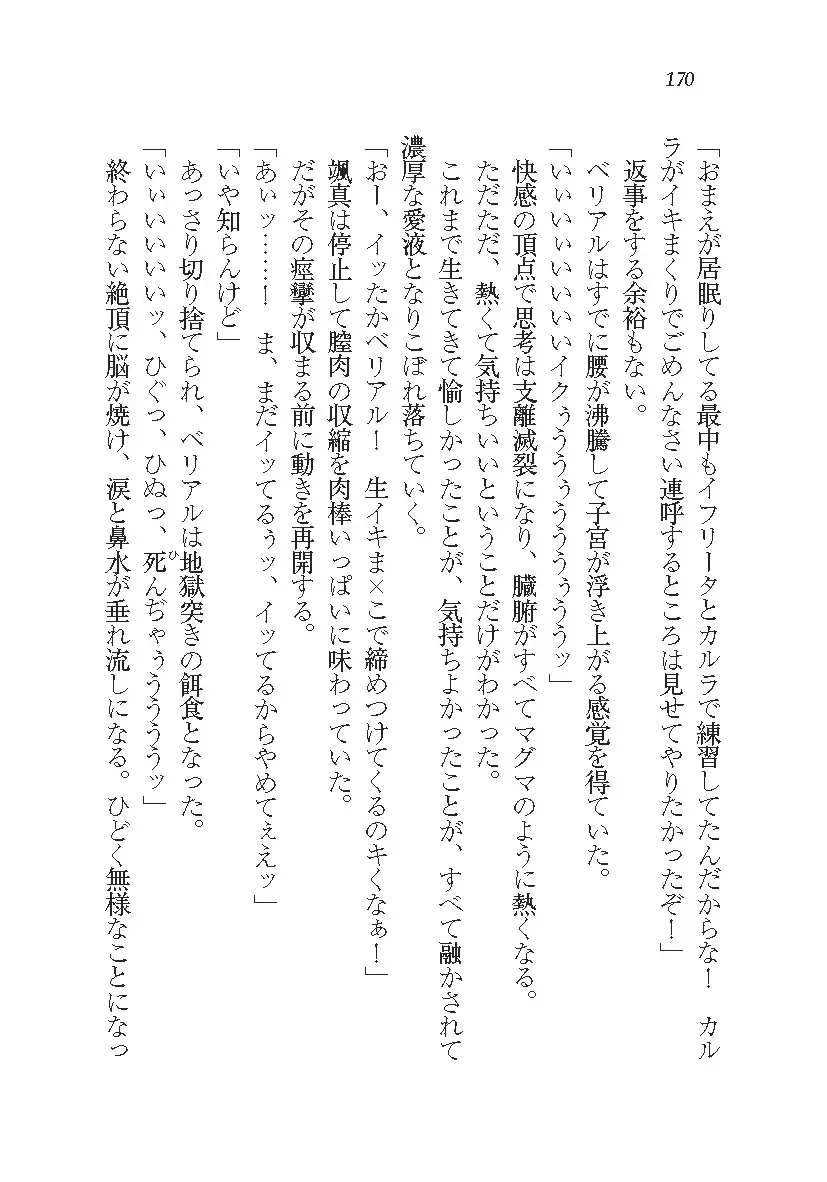 170
「おまえが居眠りしてる最中もイフリータとカルラで練習してたんだからな！　カル
ラがイキまくりでごめんなさい連呼するところは見せてやりたかったぞ！」
返事をする余裕もない。
ベリアルはすでに腰が沸騰して子宮が浮き上がる感覚を得ていた。
「いいぃいぃいいいいいイクぅううぅうううぅううッ」
快感の頂点で思考は支離滅裂になり、臓腑がすべてマグマのように熱くなる。
ただただ、熱くて気持ちいいということだけがわかった。
これまで生きてきて愉しかったことが、気持ちよかったことが、すべて融かされて
濃厚な愛液となりこぼれ落ちていく。
「おー、イッたかベリアル！　生イキま×こで締めつけてくるのキくなぁ！」
颯真は停止して膣肉の収縮を肉棒いっぱいに味わっていた。
だがその痙攣が収まる前に動きを再開する。
「あぃッ……！　ま、まだイッてるぅッ、イッてるからやめてぇえッ」
「いや知らんけど」
あっさり切り捨てられ、ベリアルは地獄突きの餌食となった。
「いいぃいいいいッ、ひぐっ、ひぬっ、死ひんぢゃぅうううッ」
終わらない絶頂に脳が焼け、涙と鼻水が垂れ流しになる。ひどく無様なことになっ